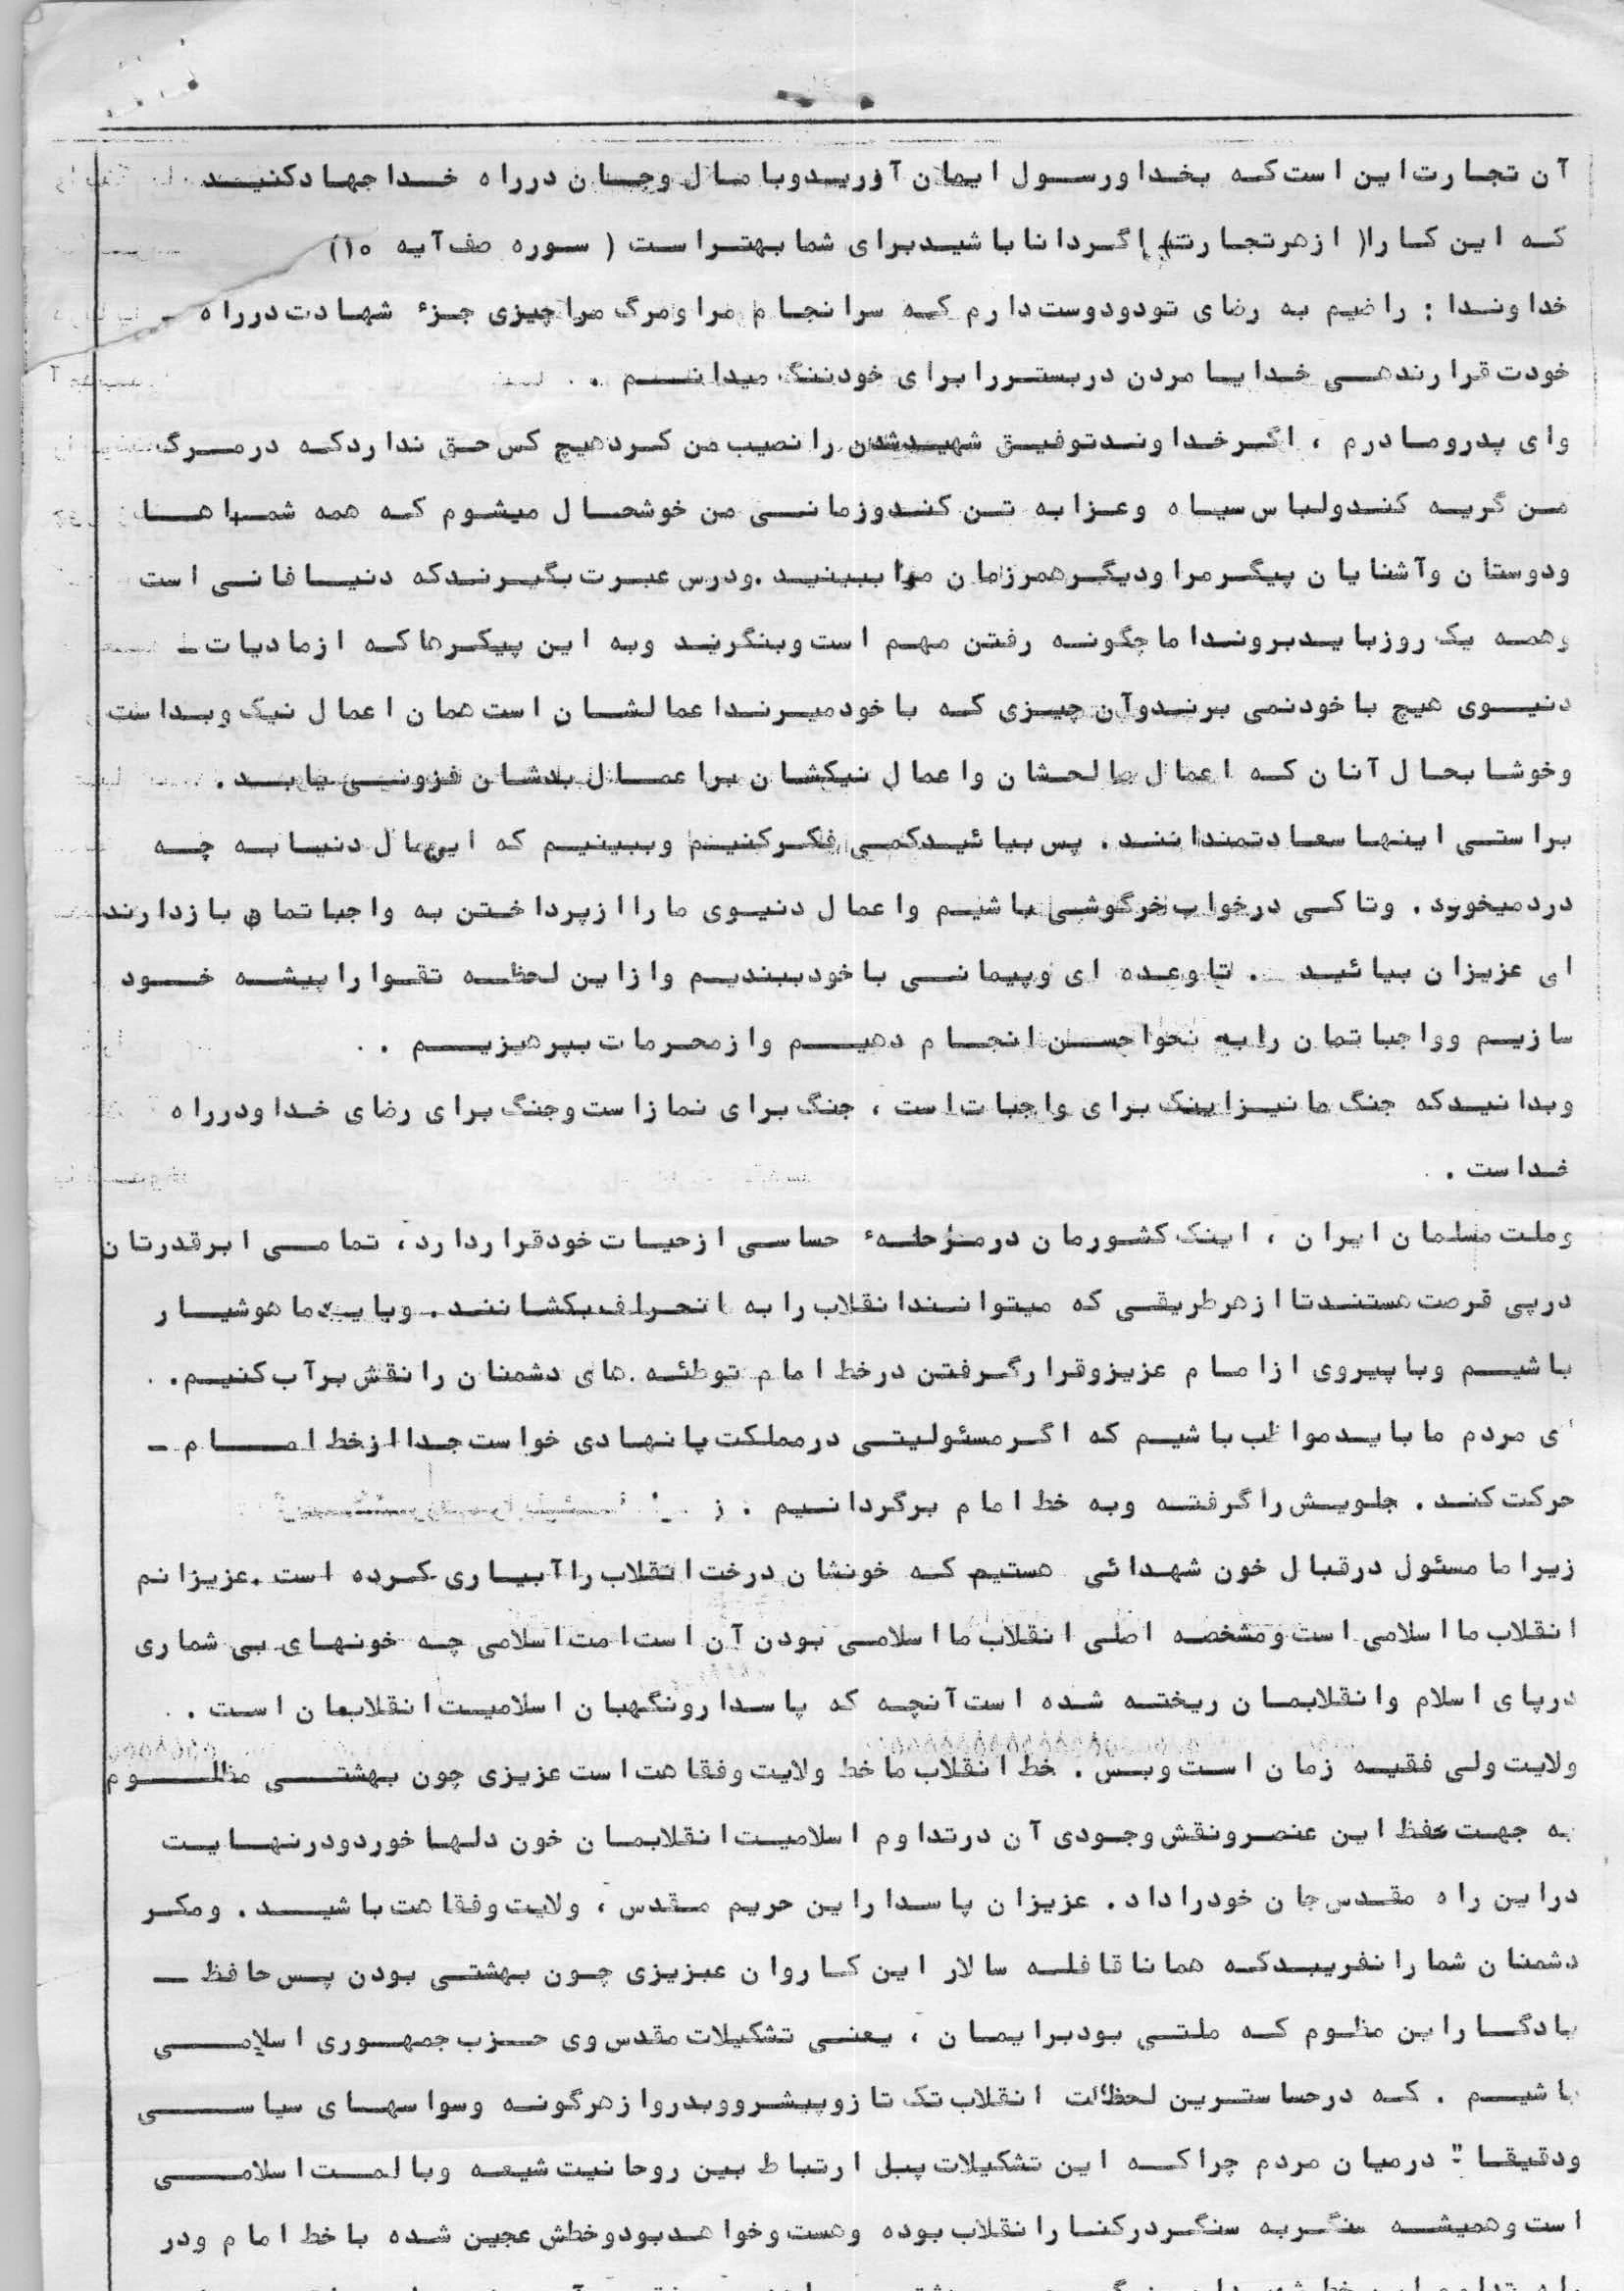 آن تجارت این است که بخدا ورسول ایمان آورید وبا مال وجان در راه خدا جهاد کنید
که این کار را( از هر تجارت) اگر دانا باشید برای شما بهتر است ( سوره صف آیه ۱۰)
خداوندا : راضیم به رضای تو ودوست دارم که سرانجام مرا ومرگ مرا چیزی جزء شهادت در راه -
خودت قرار ندهی خدایا مردن در بستر را برای خود ننگ میدانم .
وای پدر ومادرم ، اگر خداوند توفیق شهید شدن را نصیب من کرد هیچ کس حق ندارد که در مرگ
من گریه کند ولباس سیاه وعزا به تن کند وزمانی من خوشحال میشوم که همه شماها
ودوستان وآشنایان پیگر مرا ودیگر همرزمان مرا ببینید .ودرس عبرت بگیرند که دنیا فانی است
وهمه یک روز باید بروند اما چگونه رفتن مهم است وبنگرند وبه این پیکرها که از مادیات -
دنیوی هیچ با خود نمی برند وآن چیزی که با خود میبرند اعمالشان است همان اعمال نیک وبد است
وخوشا بحال آنان که اعمال صالحشان واعمال نیکشان بر اعمال بدشان فزونی یابد .
براستی اینها سعادتمندانند . پس بیائید کمی فکر کنیم وببینیم که این مال دنیا به چه
درد میخورد . وتا کی در خواب خرگوشی باشیم واعمال دنیوی ما را از پرداختن به واجباتمان باز دارند
ای عزیزان بیائید . تا وعده ای وپیمانی با خود ببندیم واز این لحظه تقوا را پیشه خود
سازیم وواجباتمان را به نحو احسن انجام دهیم واز محرمات بپرهیزیم .
وبدانید که جنگ ما نیز اینک برای واجبات است ، جنگ برای نماز است وجنگ برای رضای خدا ودر راه
خداست .
وملت مسلمان ایران ، اینک کشورمان در مرحلهء حساسی از حیات خود قرار دارد، تمامی ابرقدرتان
در پی فرصت هستند تا از هر طریقی که میتوانند انقلاب را به انحراف بکشانند . وباید ما هوشیار
باشیم وبا پیروی از امام عزیز وقرار گرفتن در خط امام توطئه های دشمنان را نقش بر آب کنیم.
ای مردم ما باید مواظب باشیم که اگر مسئولیتی در مملکت یا نهادی خواست جدا از خط امام -
حرکت کند . جلویش را گرفته وبه خط امام برگردانیم .
زیرا ما مسئول در قبال خون شهدائی هستیم که خونشان درخت انقلاب را آبیاری کرده است .عزیزانم
انقلاب ما اسلامی است ومشخصه اصلی انقلاب ما اسلامی بودن آن است امت اسلامی چه خونهای بی شماری
در پای اسلام وانقلابمان ریخته شده است آنچه که پاسدار ونگهبان اسلامیت انقلابمان است .
ولایت ولی فقیه زمان است وبس . خط انقلاب ما خط ولایت وفقاهت است عزیزی چون بهشتی مظلوم
به جهت حفظ این عنصر ونقش وجودی آن در تداوم اسلامیت انقلابمان خون دلها خورد ودر نهایت
در این راه مقدس جان خود را داد . عزیزان پاسدار این حریم مقدس ، ولایت وفقاهت باشید . ومکر
دشمنان شما را نفریبد که همانا قافله سالار این کاروان عبزیزی چون بهشتی بودن پس حافظ -
یادگار این مظوم که ملتی بود برایمان ، یعنی تشکیلات مقدس وی حزب جمهوری اسلامی
باشیم . که در حساسترین لحظات انقلاب تک تاز وپیشرو وبدور از هرگونه وسواسهای سیاسی
ودقیقا" در میان مردم چرا که این تشکیلات پبل ارتباط بین روحانیت شیعه وبا لمت اسلامی
است وهمیشه سنگر به سنگر در کنار انقلاب بوده وهست وخواهد بود وخطش عجین شده با خط امام ودر